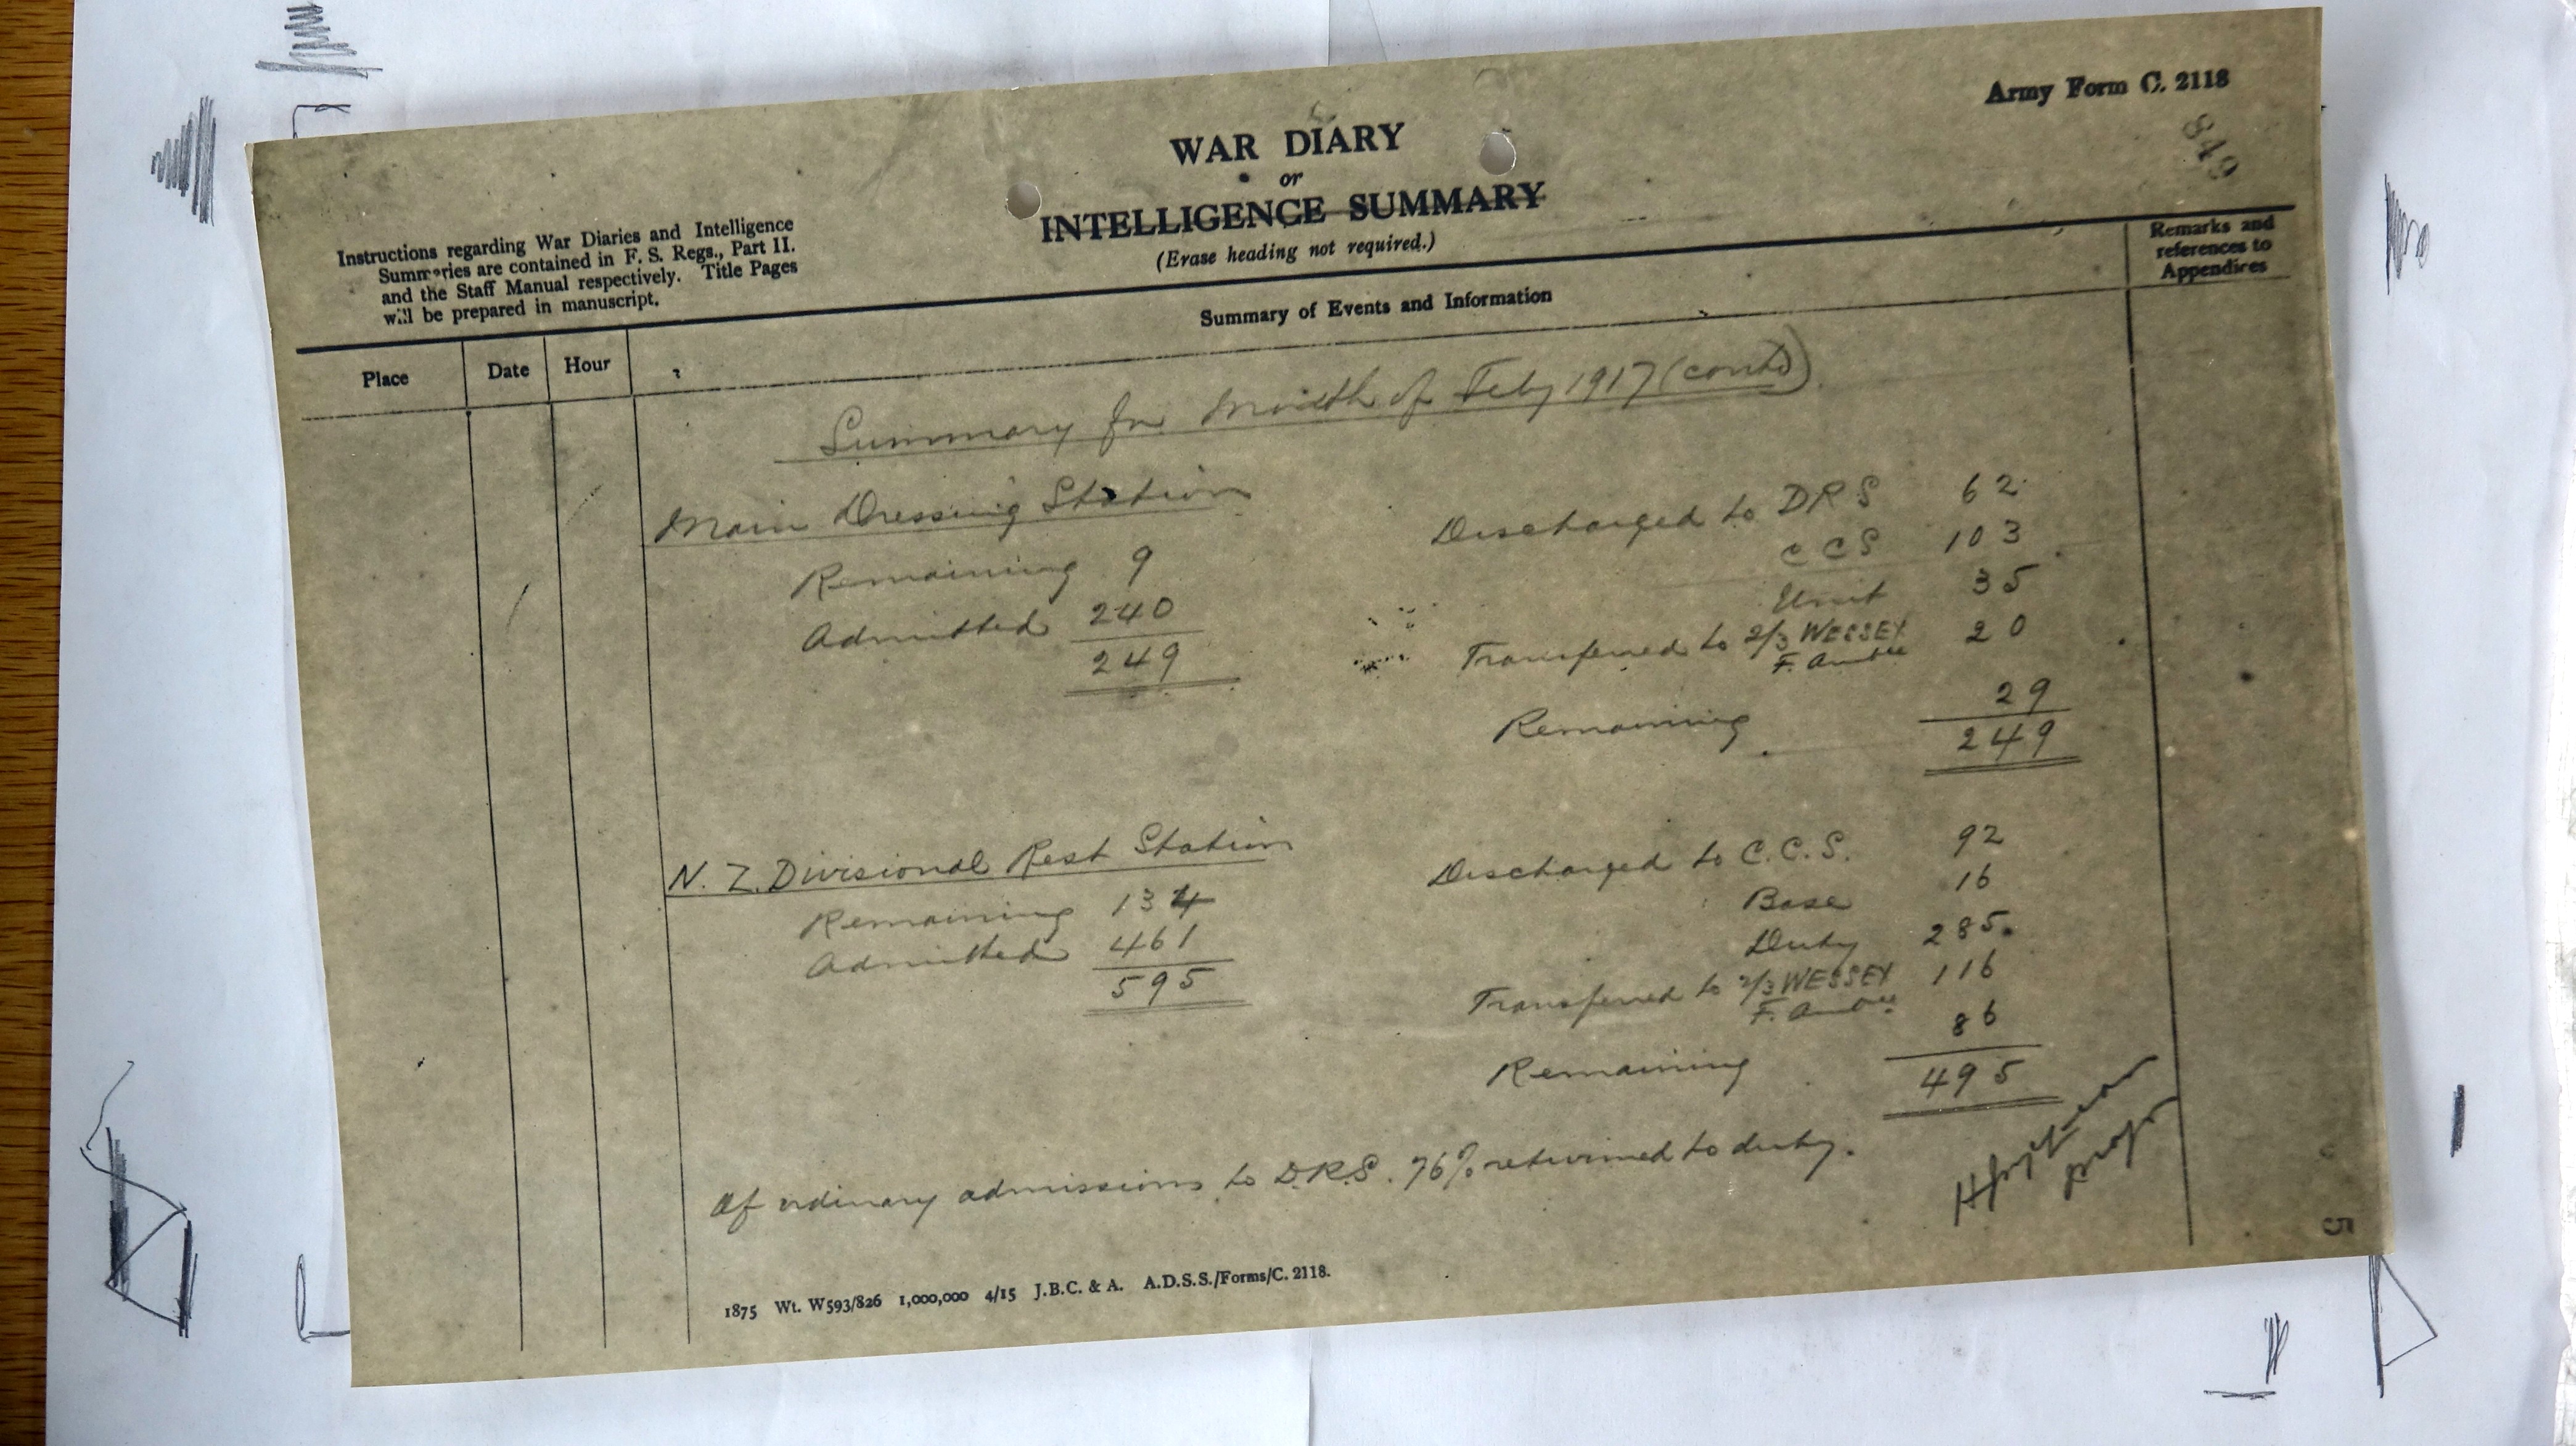 Army Form C. 2118
849
WAR DIARY
or
INTELLIGENCE SUMMARY
(Erase heading not required.)
Instructions regarding War Diaries and Intelligence
Summaries are contained in F. S. Regs., Part II.
and the Staff Manual respectively. Title Pages
will be prepared in manuscript.
Summary of Events and Information
Remarks and
references to
Appendices
Place Date Hour
Summary for Month of Feby 1917 (contd)
Main Dressing Station
Remaining 9
Admitted 240
249
Discharged to DRS 62
CCS 103
Unit 35
Transferred to 2/3 WESSEX 20
F. Ambce
Remaining 29
249
N. Z. Divisional Rest Station
Remaining 134
Admitted 461
595
Discharged to C.C.S. 92
Base 16
Duty 285.
Transferred to 2/3 WESSEX 116
F. Ambce
Remaining 86
495
Of ordinary admissions to D.R.S. 76% returned to duty.
5
1875 Wt. W593/826 1,000,000 4/15 J.B.C. & A. A.D.S.S./Forms/C. 2118.